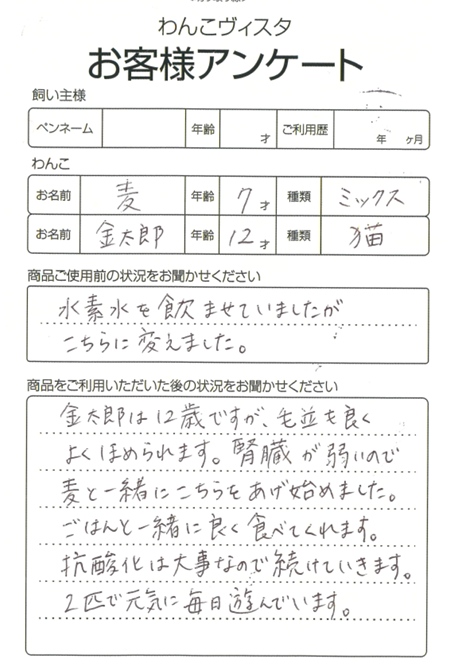 わんこヴィスタ
お客様アンケート
飼い主様
ペンネーム 年齢 才 ご利用歴 年 ヶ月
わんこ
お名前 麦 年齢 7才 種類 ミックス
お名前 金太郎 年齢 12才 種類 猫
商品ご使用前の状況をお聞かせください
水素水を飲ませていましたが
こちらに変えました。
商品をご利用いただいた後の状況をお聞かせください
金太郎は12歳ですが、毛並も良く
よくほめられます。腎臓が弱いので
麦と一緒にこちらをあげ始めました。
ごはんと一緒に良く食べてくれます。
抗酸化は大事なので続けていきます。
2匹で元気に毎日遊んでいます。